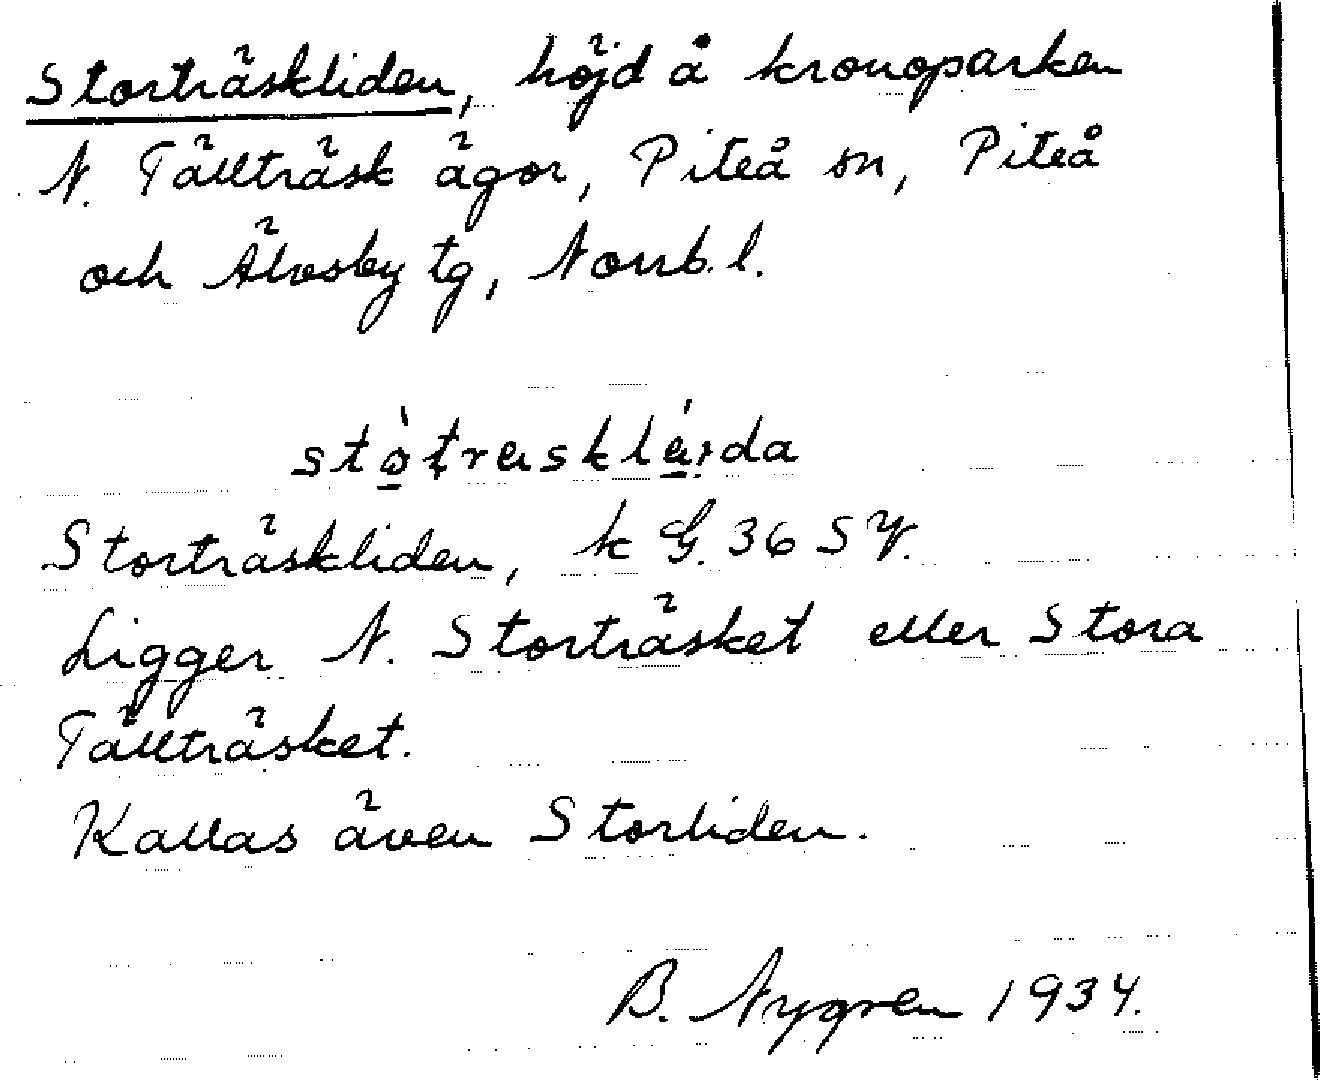 Storträskliden, höjd å kronoparken
N. Tällträsk ägor, Piteå sn, Piteå
och Älvsby tg, Norrb. l.
Storträskliden, k G. 36 SV.
Ligger N. Storträsket eller Stora
Tällträsket.
Kallas även Storliden.
B. Nygren 1934.